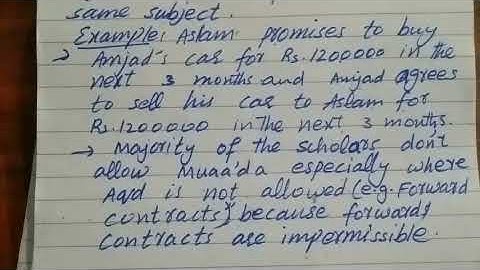 same subject.
Example: Aslam promises to buy
→ Amjad's car for Rs.1200000 in the
next 3 months and Amjad agrees
to sell his car to Aslam for
Rs.1200000 in the next 3 months.
→ Majority of the scholars don't
allow Muaa'da especially where
Aqd is not allowed (e.g. Forward
contracts) because forward
contracts are impermissible.